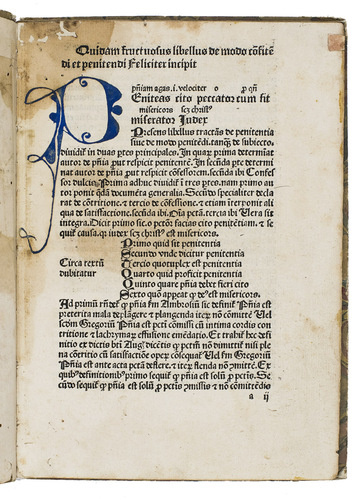 Quidam fructuosus libellus de modo cōfitē
di et penitendi Feliciter incipit
pñiam agas .i. velociter o
Eniteas cito peccator cum sit
misericors sez christꝰ
miserator Judex
Presens libellus tractās de penitentia
siue de modo penitēdi. tanqꝫ de subiecto.
diuidiť in duas ptes principales. In quaꝝ prima determiať
autor de pñia put respicit penitentē. In secūda pte determi
nať autor de pñia put respicit cōfessorem. secūda ibi Confes
sor dulcis. Prima adhuc diuidiť ī tres ptes. nam primo au
tor ponit qdā documēta generalia. Secūdo specialiter decla
rat de cōtritione. ⁊ tercio de cōfessione. ⁊ etiam īterponit ali
qua de satisfactione. secūda ibi. tercia ibi Uera sit
integra. Dicit primo sic. o pctōr facias cito penitētiam. ⁊ se
quiť causa. qꝛ iudex sez christꝰ est misericors.
Primo quid sit penitentia
Secundo vnde dicitur penitentia
Circa textū Tercio quotuplex est penitentia
dubitatur Quarto quid proficit penitentia
Quinto quare pñia debꝫ fieri cito
Sexto quō appareat ꝙ deꝰ est misericors.
Ad primū rñdeť ꝙ pñia fm Ambrosiū sic definiť Pñia est
preterita mala deplāgere ⁊ plangenda iterꝝ nō cōmitte Uel
scdm Gregoriū Pñia est pcti cōmissi cū intima cordis con
tritione ⁊ lachrymaꝝ effusione emēdatio. Et trahiť hec defi
nitio ex dictis bti Aug. dicētis ꝙ pctm nō dimittiť nisi ple
na cōtritio cū satisfactiōe opere cōsequať Uel fm Gregoriū
Pñia est ante acta pctā deflere. ⁊ iterꝝ flenda nō mittē. Ex
quibꝰ definitionibꝰ primo sequiť ꝙ pñia est solū pctis. Se
cūdo sequiť ꝙ pñia est solū pctis missis ⁊ nō cōmittēdis
a ij